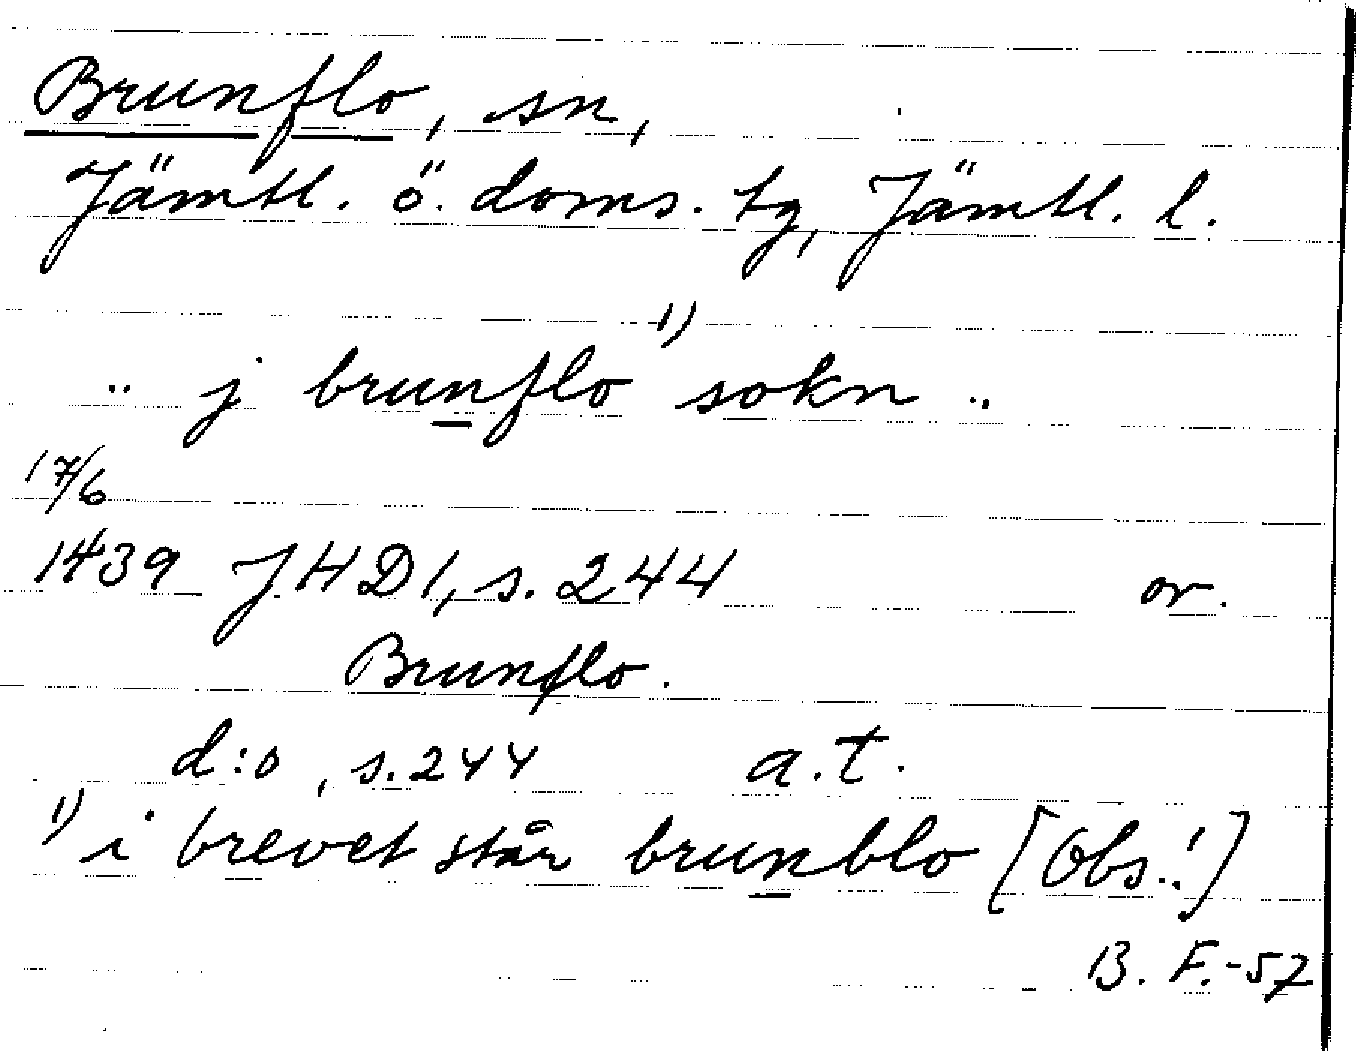 Brunflo, sn,
Jämtl. ö. doms. tg, Jämtl. l.
.. j brunflo ¹⁾ sokn ..
17/6
1439 JHD1, s. 244 or.
Brunflo.
d:o, s. 244 a.t.
1) i brevet står brunblo [Obs.!]
B. F. -57